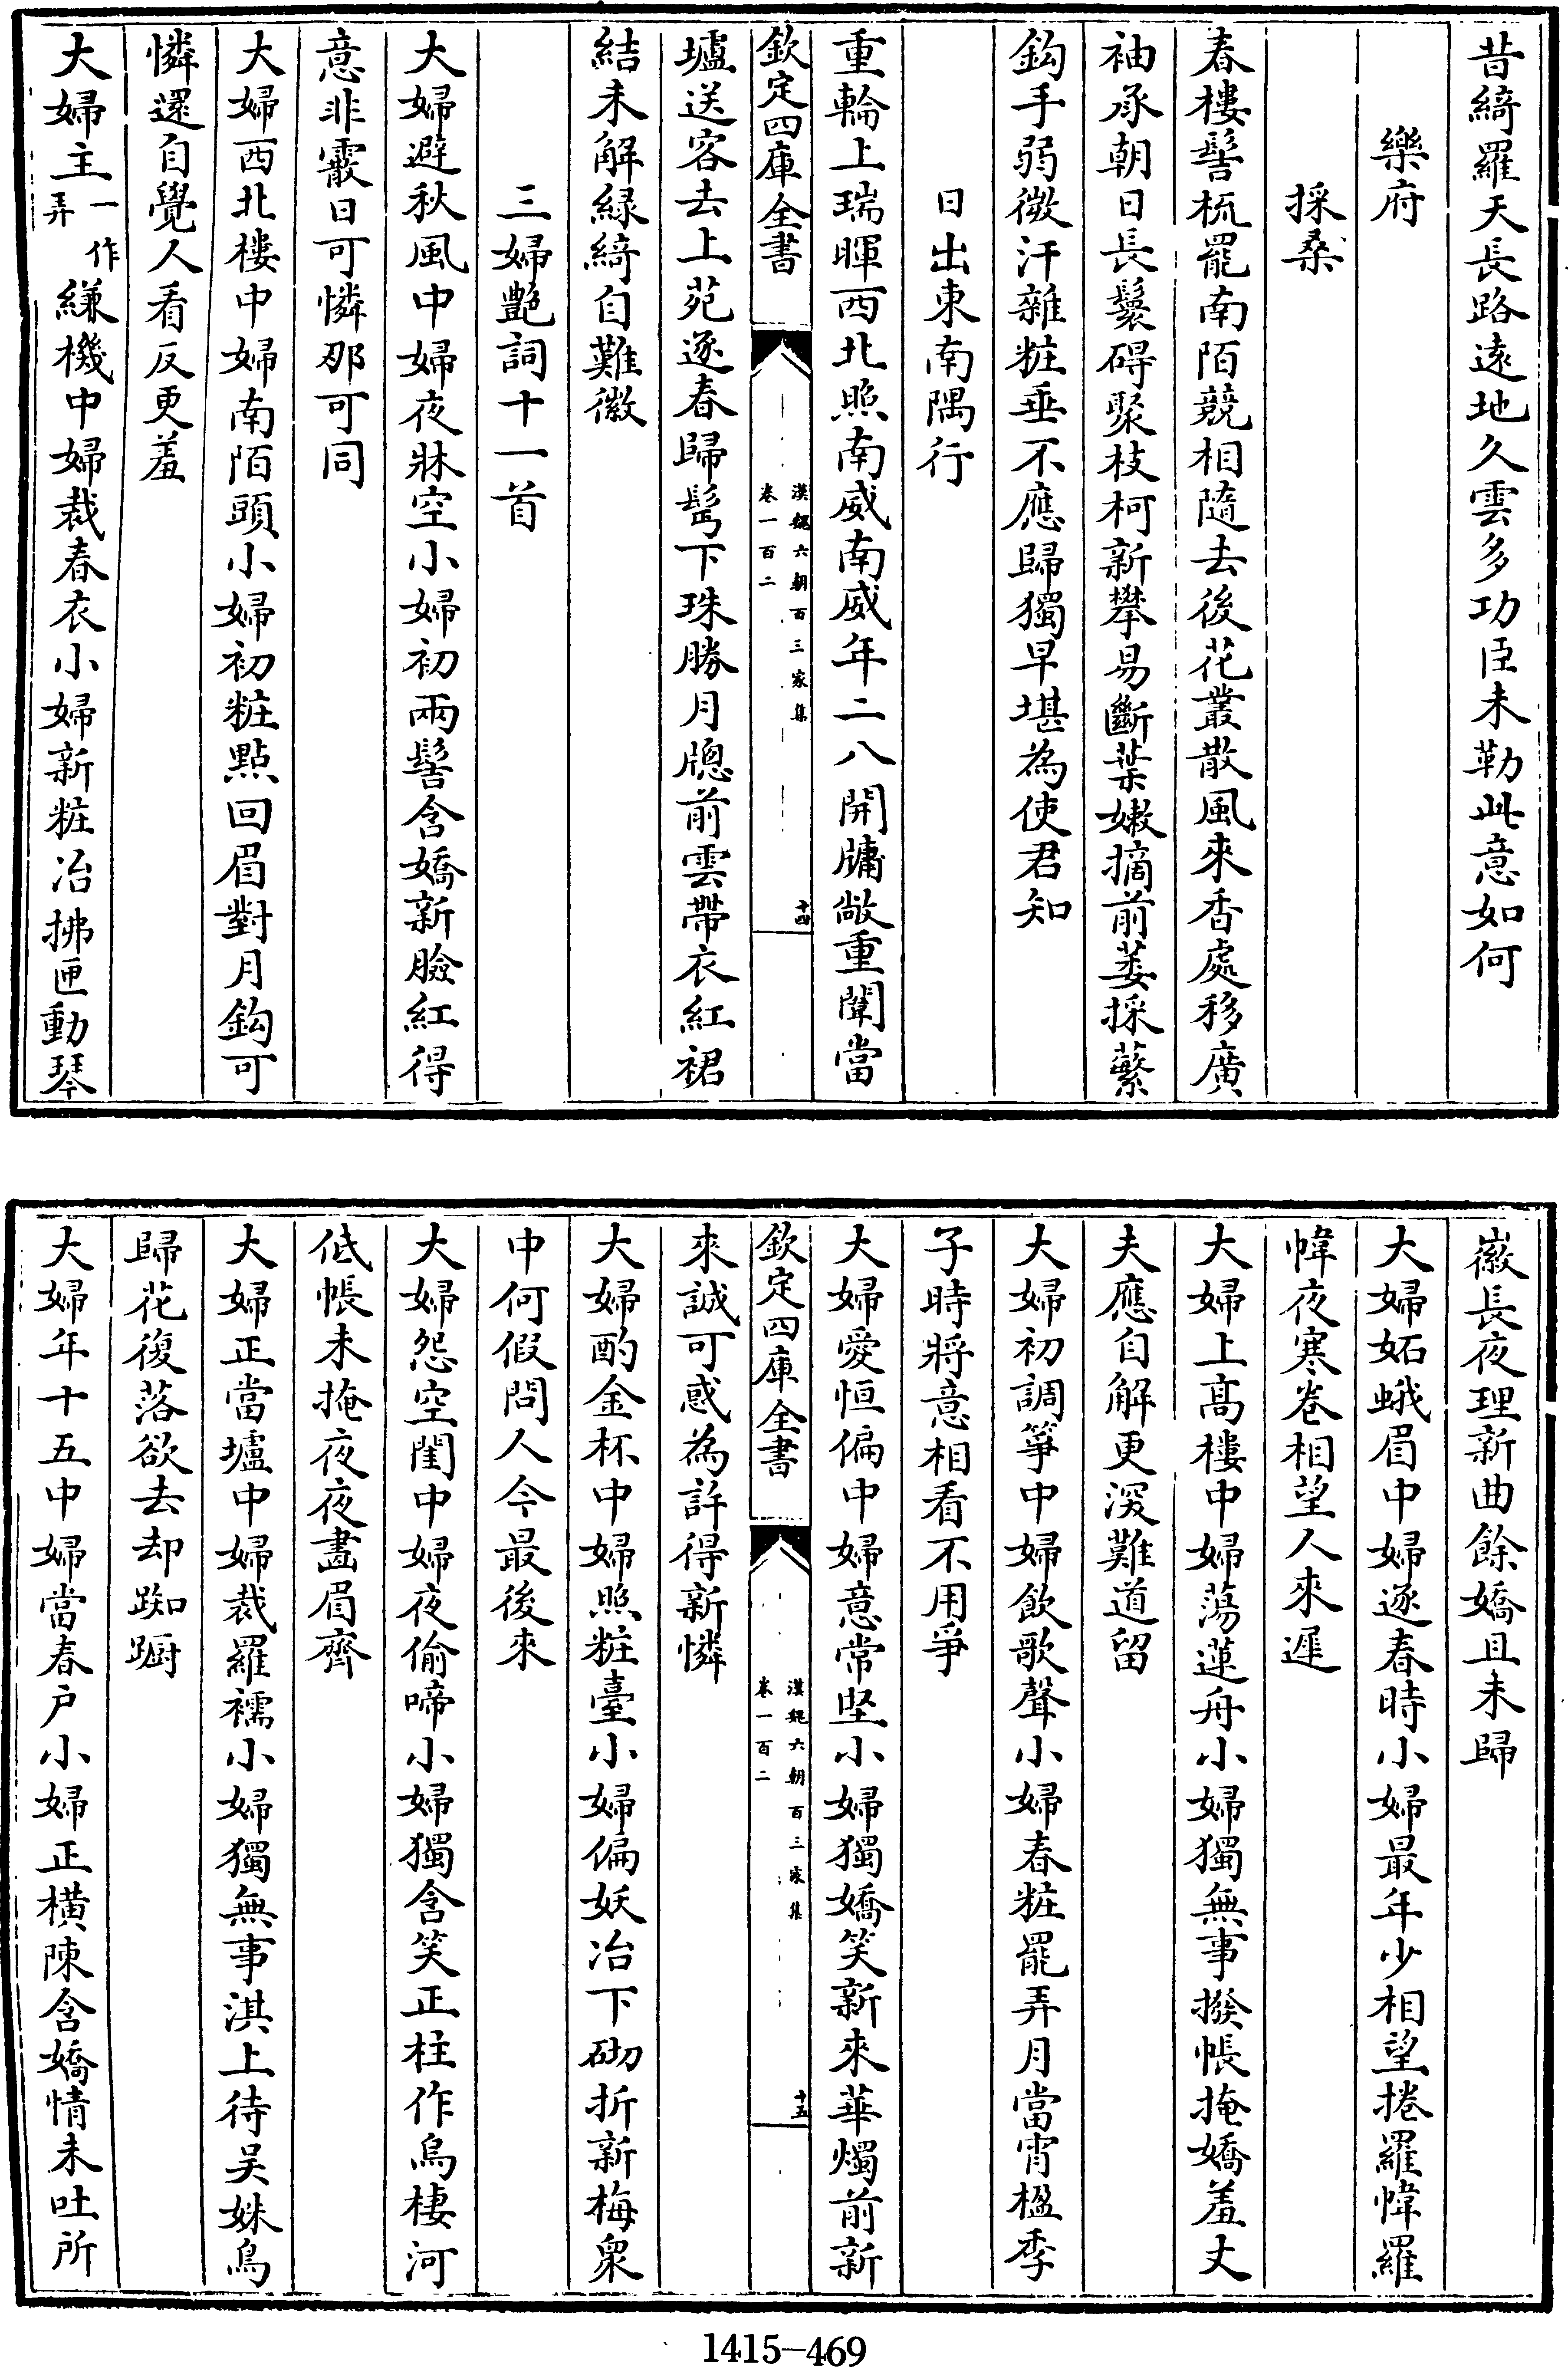 昔綺羅天長路遠地久雲多功臣未勒此意如何
樂府
採桑
春樓髻梳罷南陌競相隨去後花叢散風來香處移廣
袖承朝日長鬟碍聚枝柯新攀易斷葉嫩摘前萎採蘩
鈎手弱微汗雜粧垂不應歸獨早堪為使君知
日出東南隅行
重輪上瑞暉西北照南威南威年二八開牗敞重闈當
欽定四庫全書
漢魏六朝百三家集
卷一百二
十四
壚送客去上苑逐春歸髩下珠勝月牕前雲帶衣紅裙
結未解緑綺自難徽
三婦艶詞十一首
大婦避秋風中婦夜牀空小婦初兩髻含嬌新臉紅得
意非霰日可憐那可同
大婦西北樓中婦南陌頭小婦初粧㸃回眉對月鈎可
憐還自覺人看反更羞
大婦主一作弄縑機中婦裁春衣小婦新粧冶拂匣動琴
徽長夜理新曲餘嬌且未歸
大婦妬蛾眉中婦逐春時小婦最年少相望捲羅幃羅
幃夜寒卷相望人來遲
大婦上髙樓中婦蕩蓮舟小婦獨無事撥帳掩嬌羞丈
夫應自解更深難道留
大婦初調箏中婦飲歌聲小婦春粧罷弄月當宵楹季
子時將意相看不用爭
大婦愛恒偏中婦意常堅小婦獨嬌笑新來華燭前新
欽定四庫全書
漢魏六朝百三家集
卷一百二
十五
來誠可惑為許得新憐
大婦酌金杯中婦照粧臺小婦偏妖冶下砌折新梅衆
中何假問人今最後來
大婦怨空閨中婦夜偷啼小婦獨含笑正柱作烏棲河
低帳未掩夜夜畫眉齊
大婦正當壚中婦裁羅襦小婦獨無事淇上待吳姝鳥
歸花復落欲去却踟蹰
大婦年十五中婦當春户小婦正橫陳含嬌情未吐所
1415-469